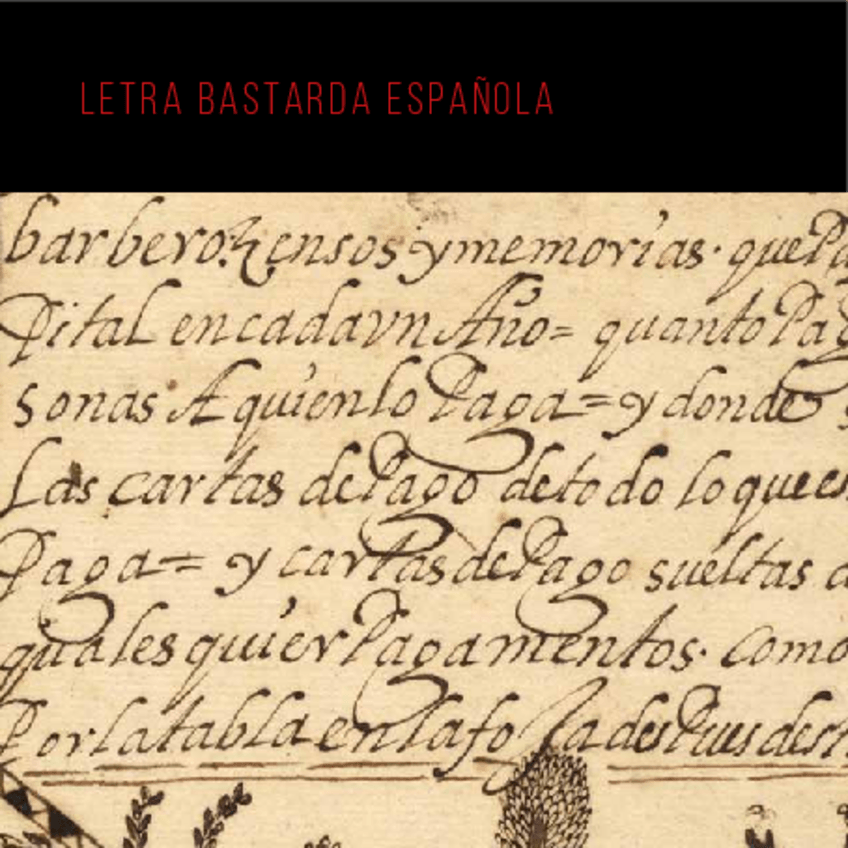 LETRA BASTARDA ESPAÑOLA
barbero. çensos y memorias. que Pa
Pital en cada vn Año = quanto Pag
sonas A quien lo Paga = y donde s
Las cartas de Pago de todo lo que es
Paga = y cartas de Pago sueltas a
quales quier Pagamentos. como
Por la tabla en la foja despues desta